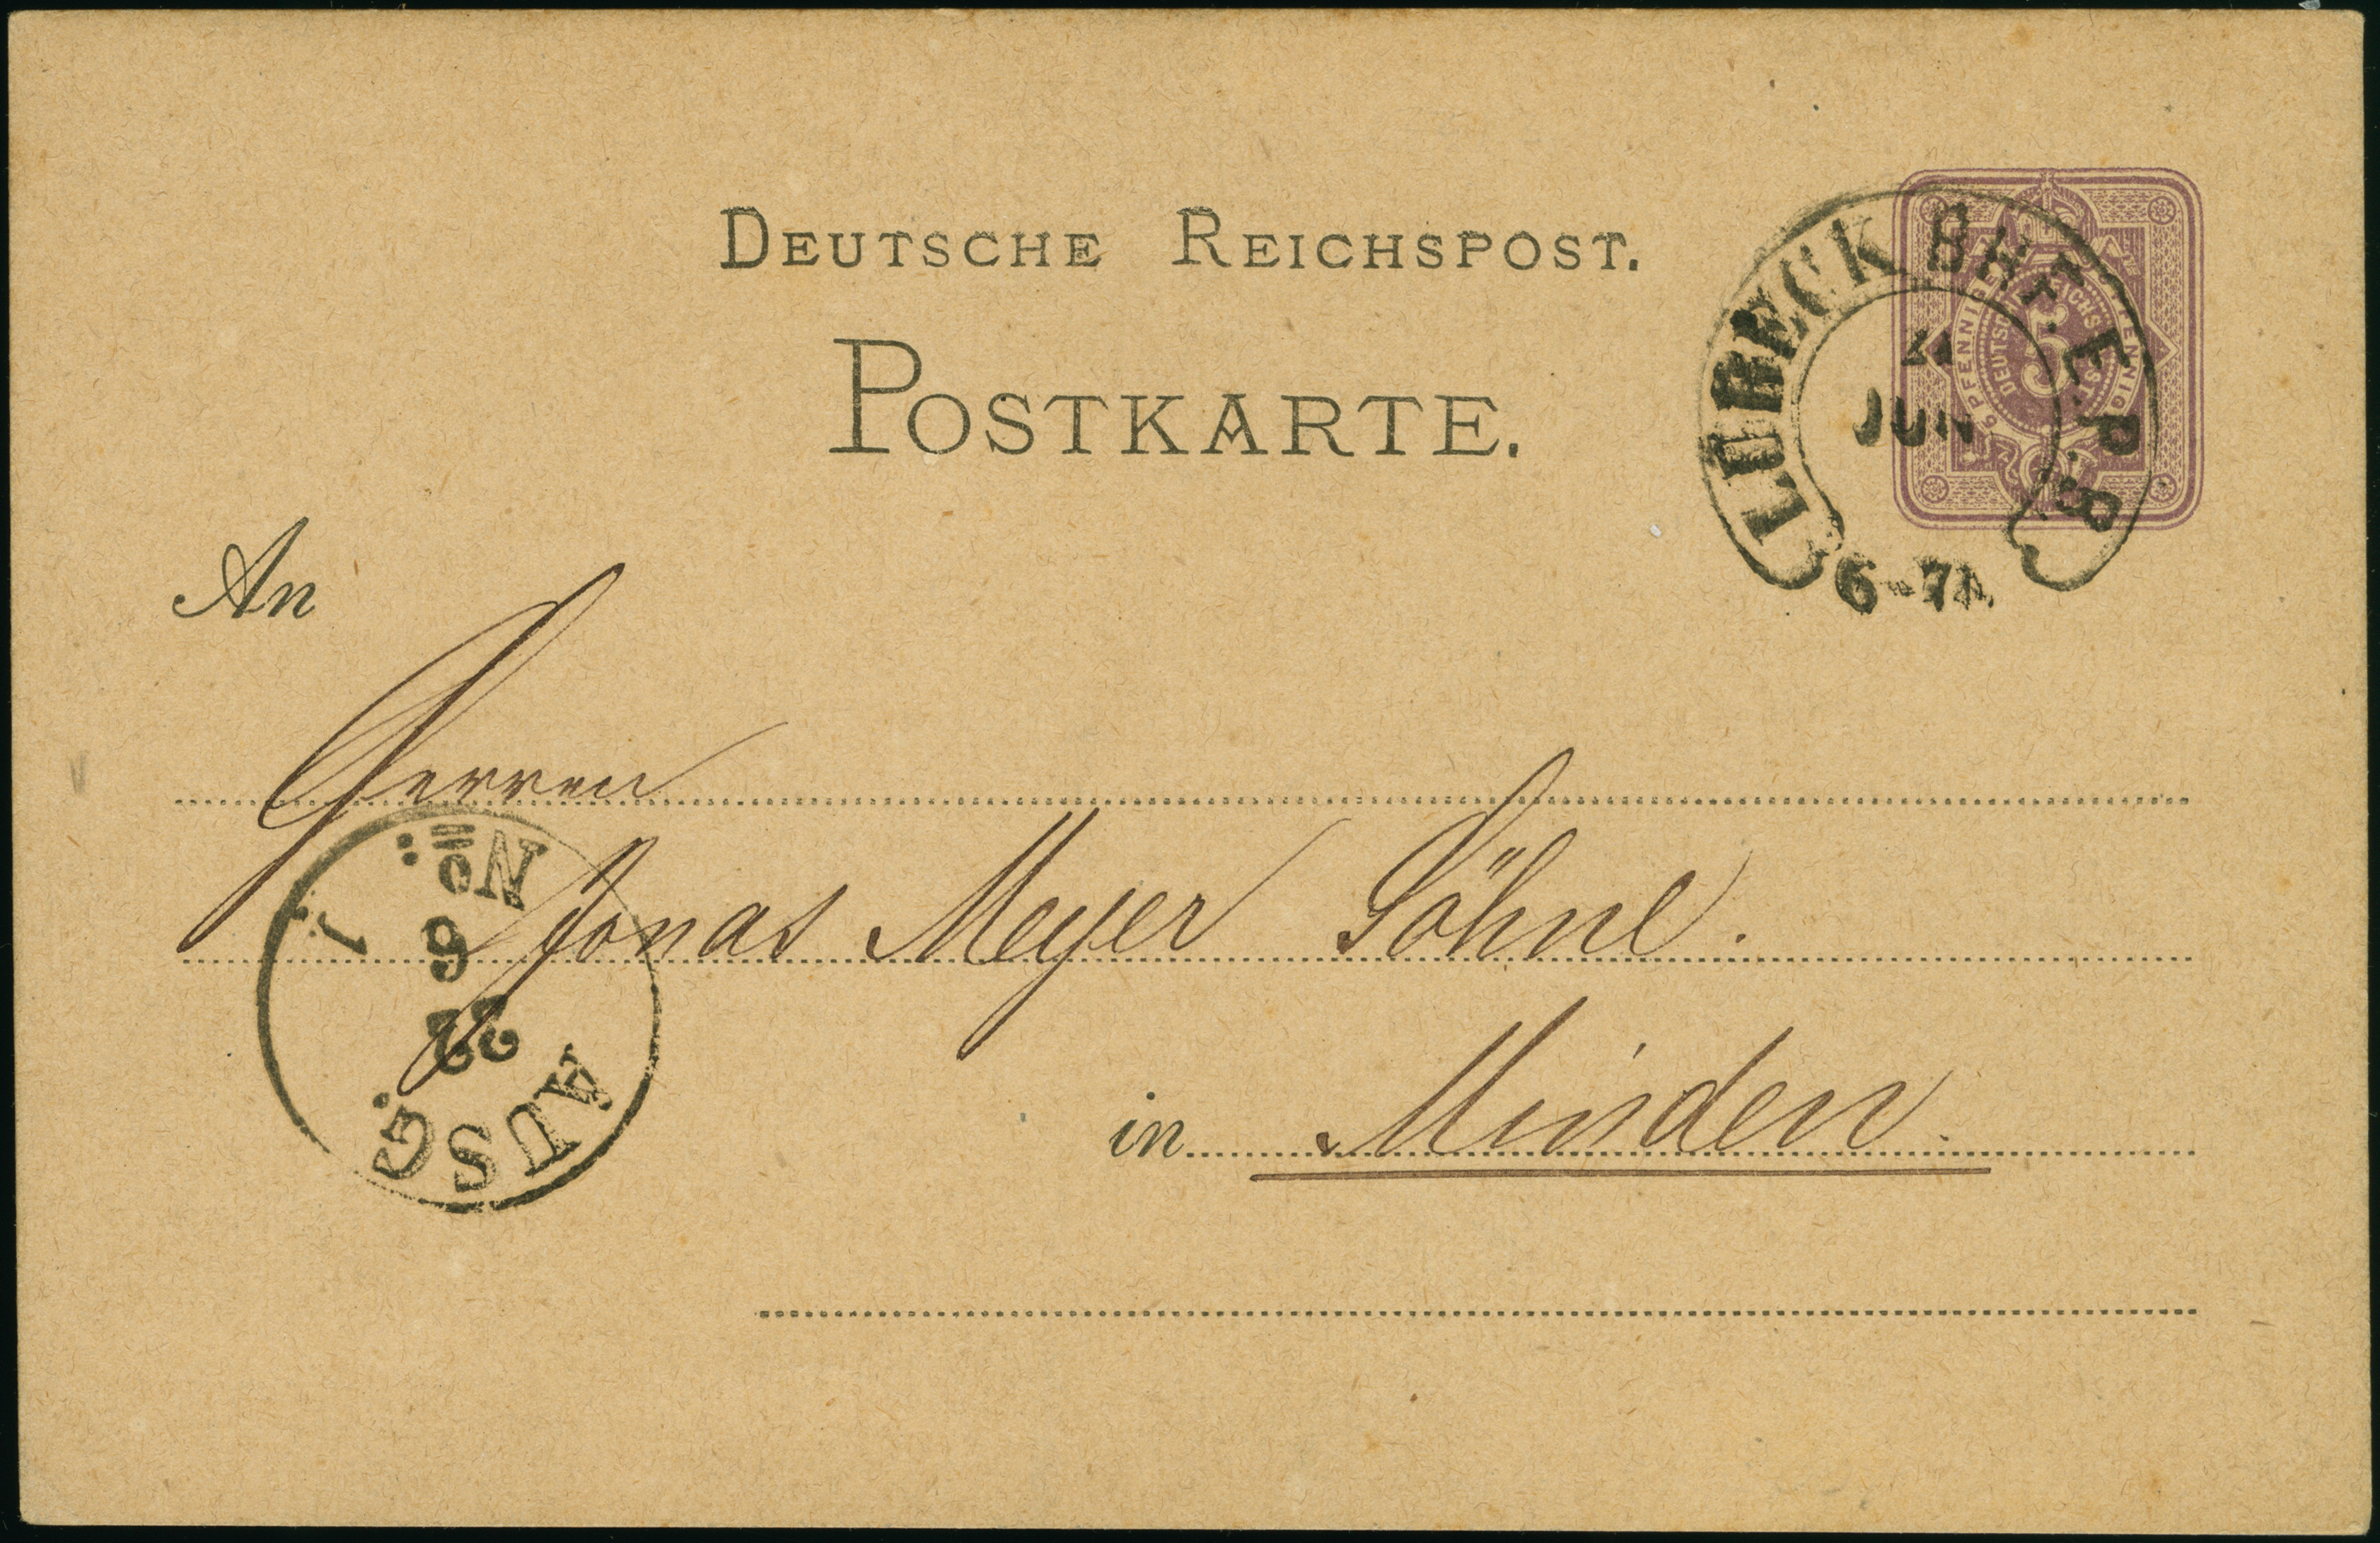 DEUTSCHE REICHSPOST.
POSTKARTE.
LÜBECK BHF. E.P.B.
21
JUN
6-7N.
5 PFENNIG
DEUTSCHE REICHS-POST
5
An
Herren
Jonas Meyer Söhne.
in Minden.
AUSG.
22
6
No: 1